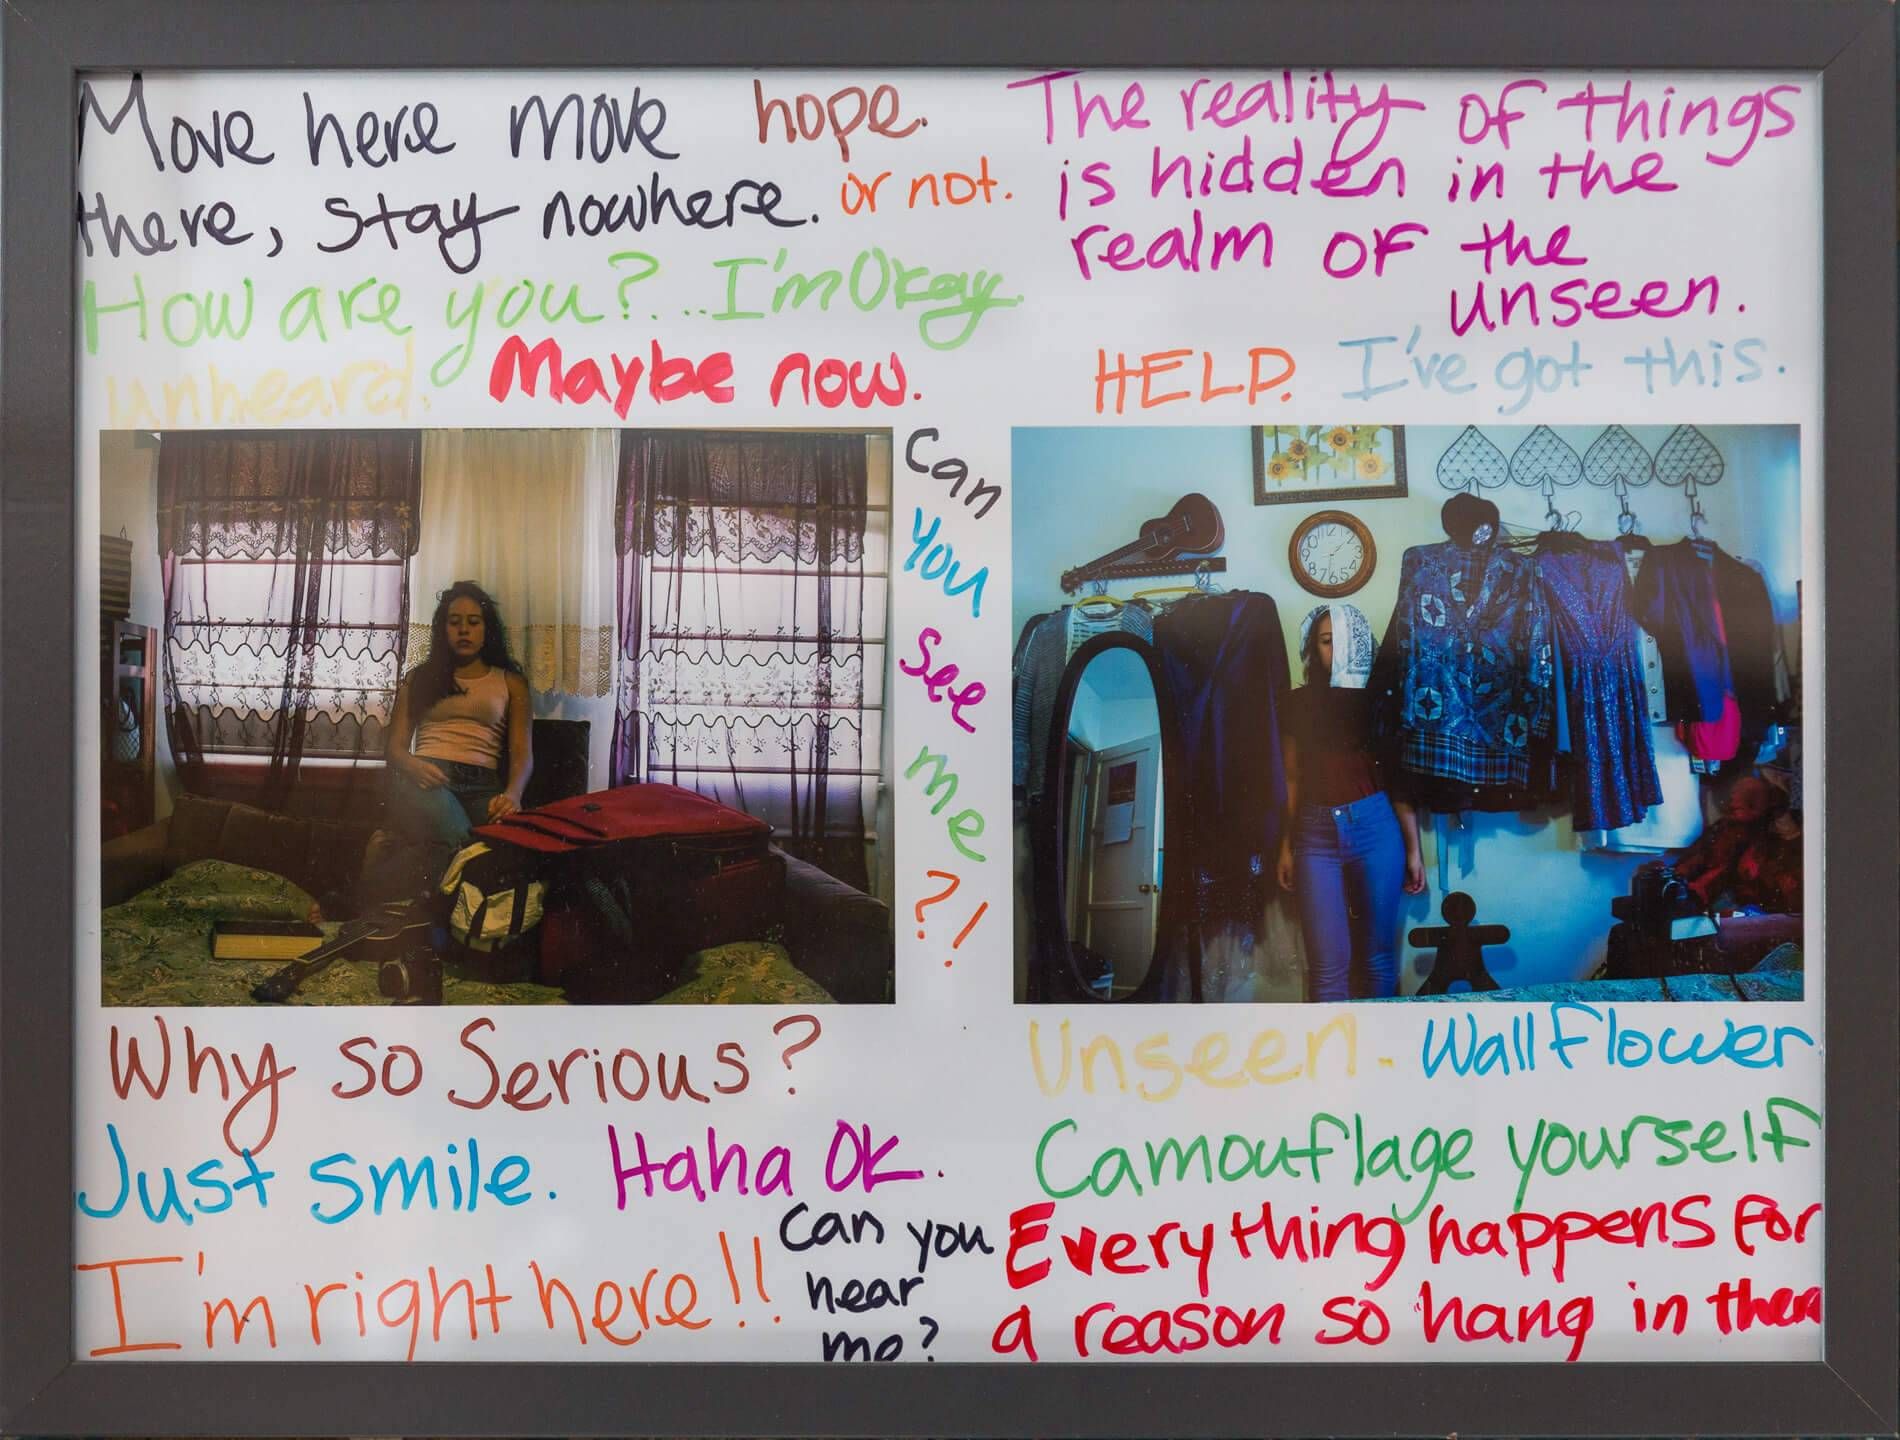 Move here move
there, stay nowhere.
hope.
or not.
How are you?...I'm Okay.
unheard. Maybe now.
The reality of things
is hidden in the
realm of the
unseen.
HELP. I've got this.
Can
you
see
me
?!
Why so Serious?
Just smile. Haha OK.
I'm right here!!
Can you
hear
me?
Unseen. Wallflower
Camouflage yourself
Everything happens for
a reason so hang in there